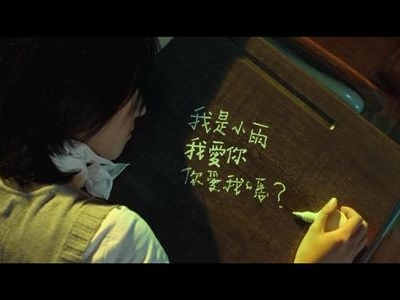 我是小雨
我愛你
你愛我嗎？